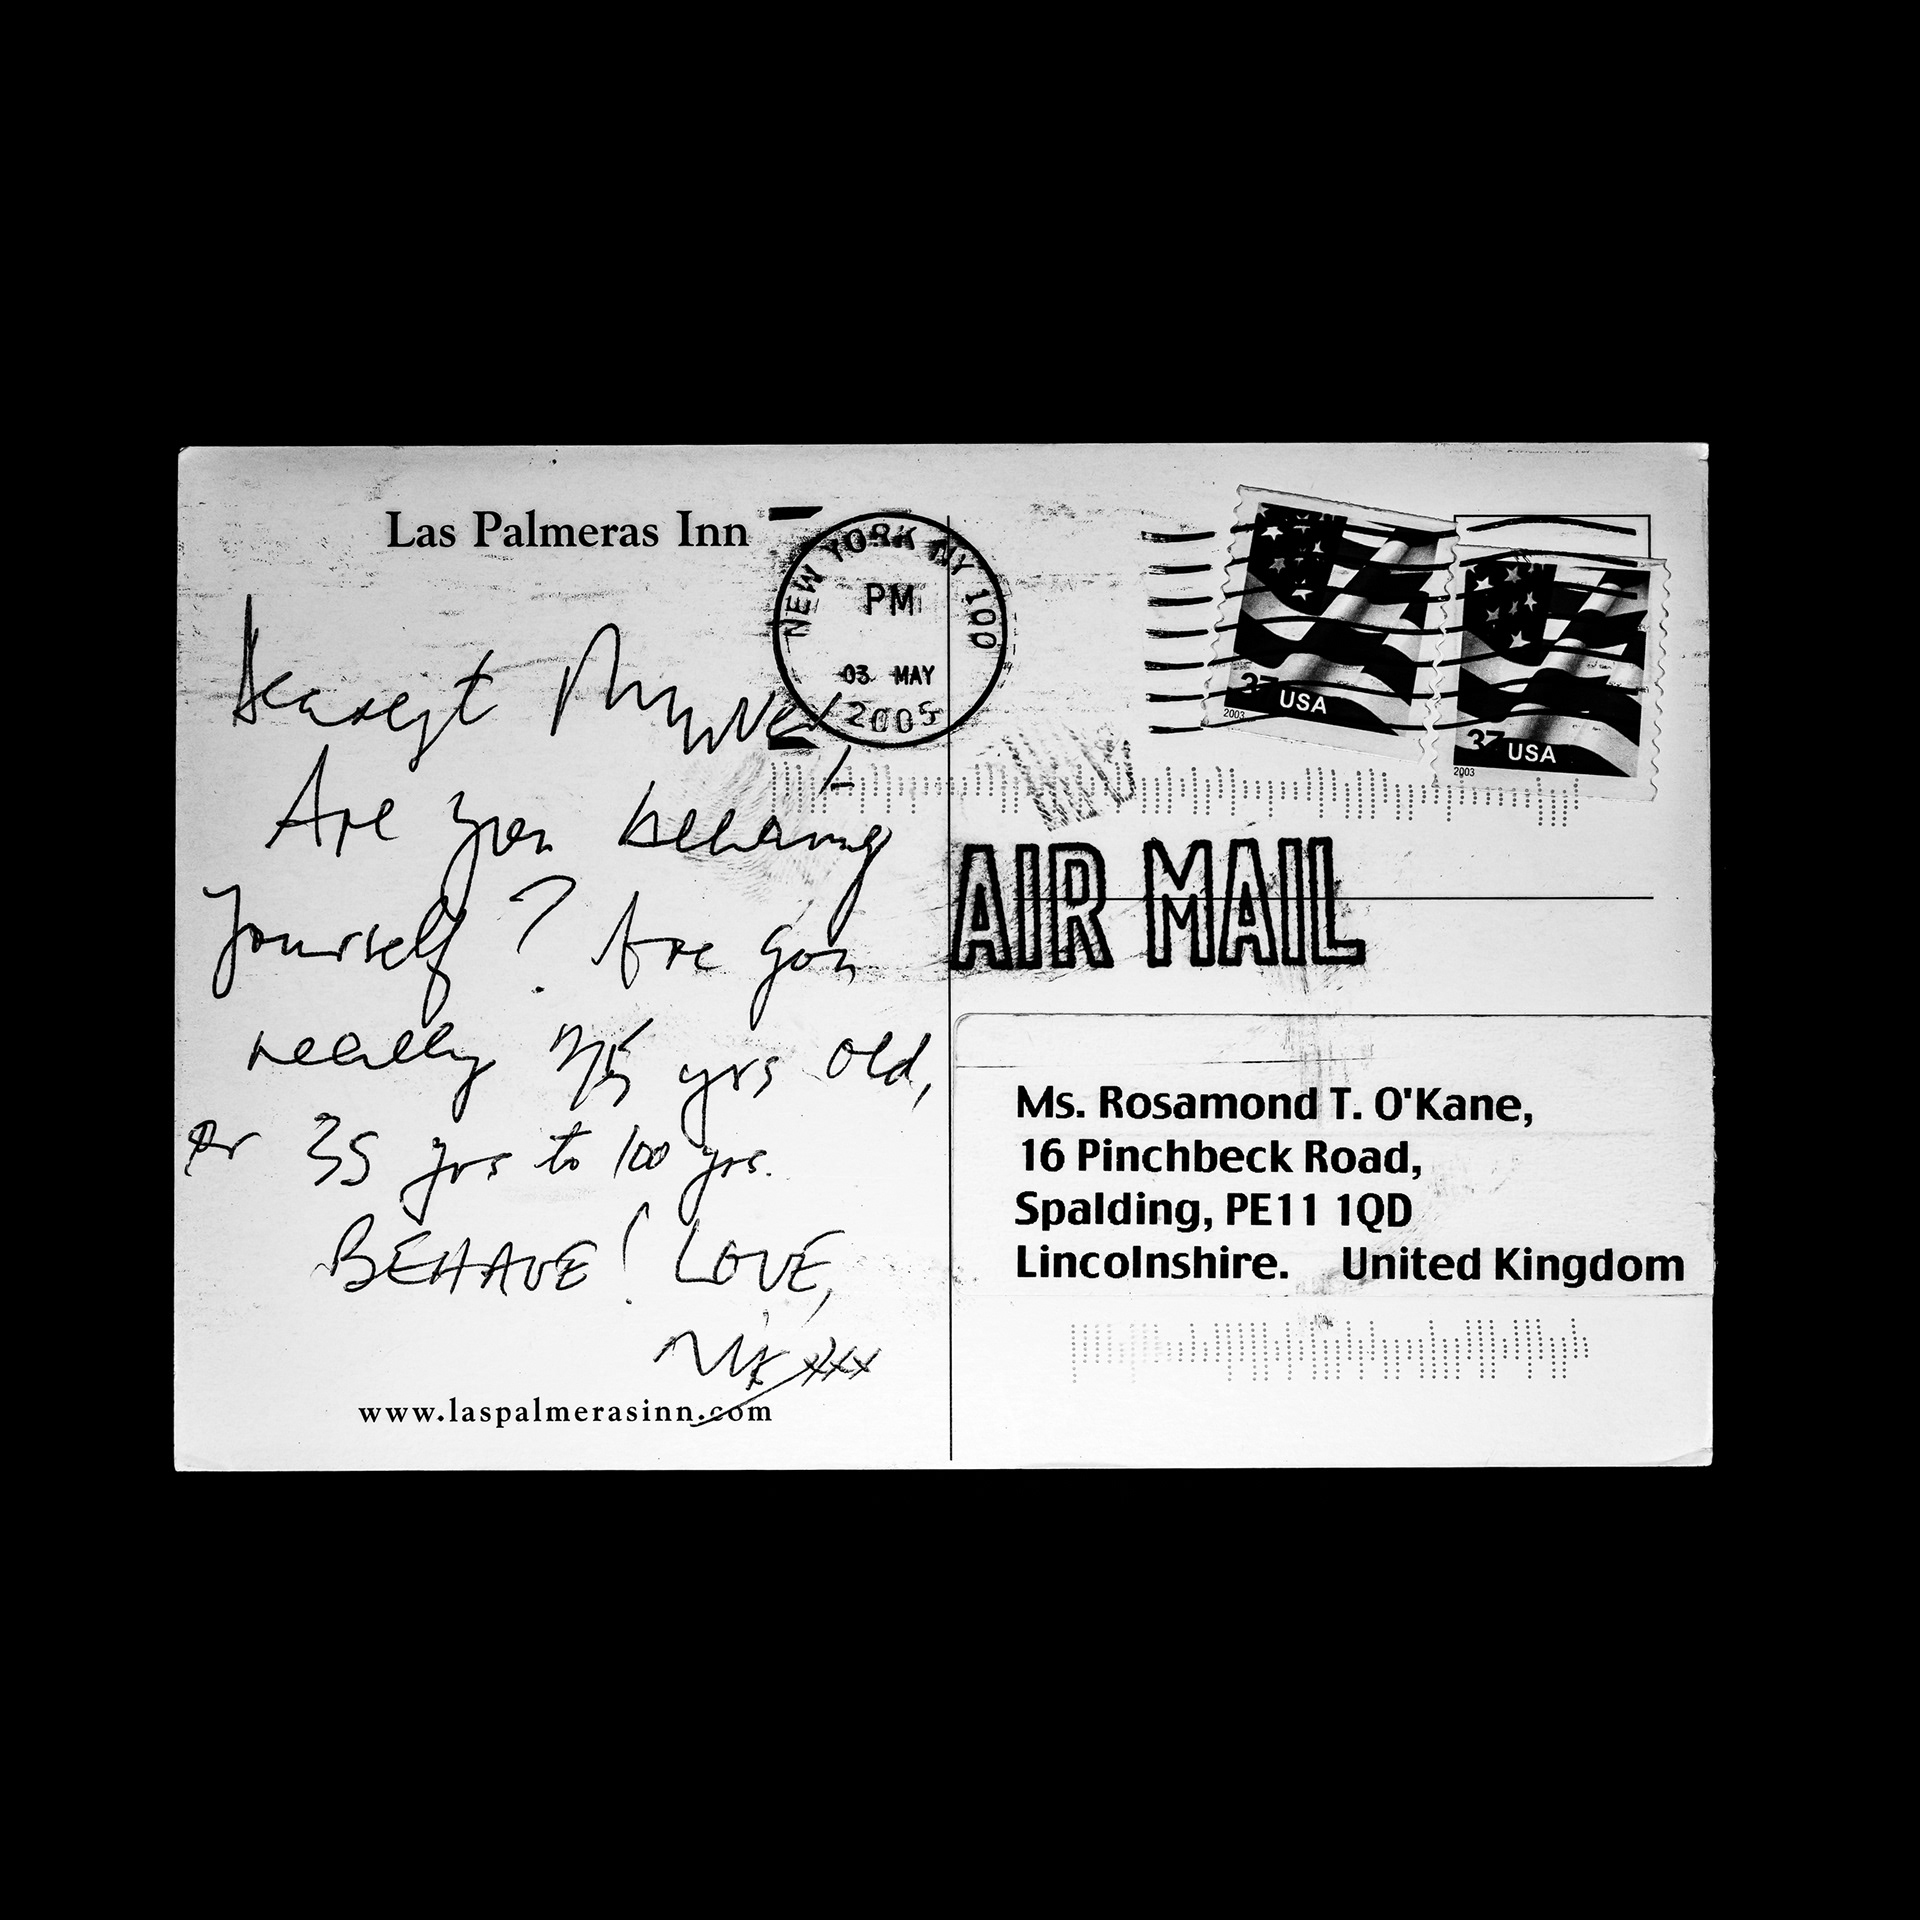 Las Palmeras Inn
NEW YORK NY 100
PM
03 MAY
2005
37 USA
2003
37 USA
2003
Dearest
Are you behaving
yourself? Are you
really 75 yrs old,
or 35 yrs to 100 yrs.
BEHAVE! LOVE,
xxx
www.laspalmerasinn.com
AIR MAIL
Ms. Rosamond T. O'Kane,
16 Pinchbeck Road,
Spalding, PE11 1QD
Lincolnshire. United Kingdom